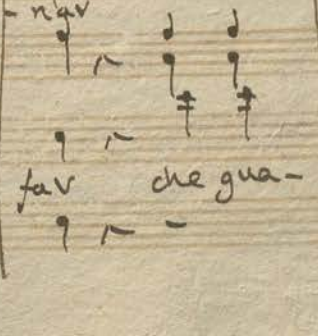 - nav
fav che gua-